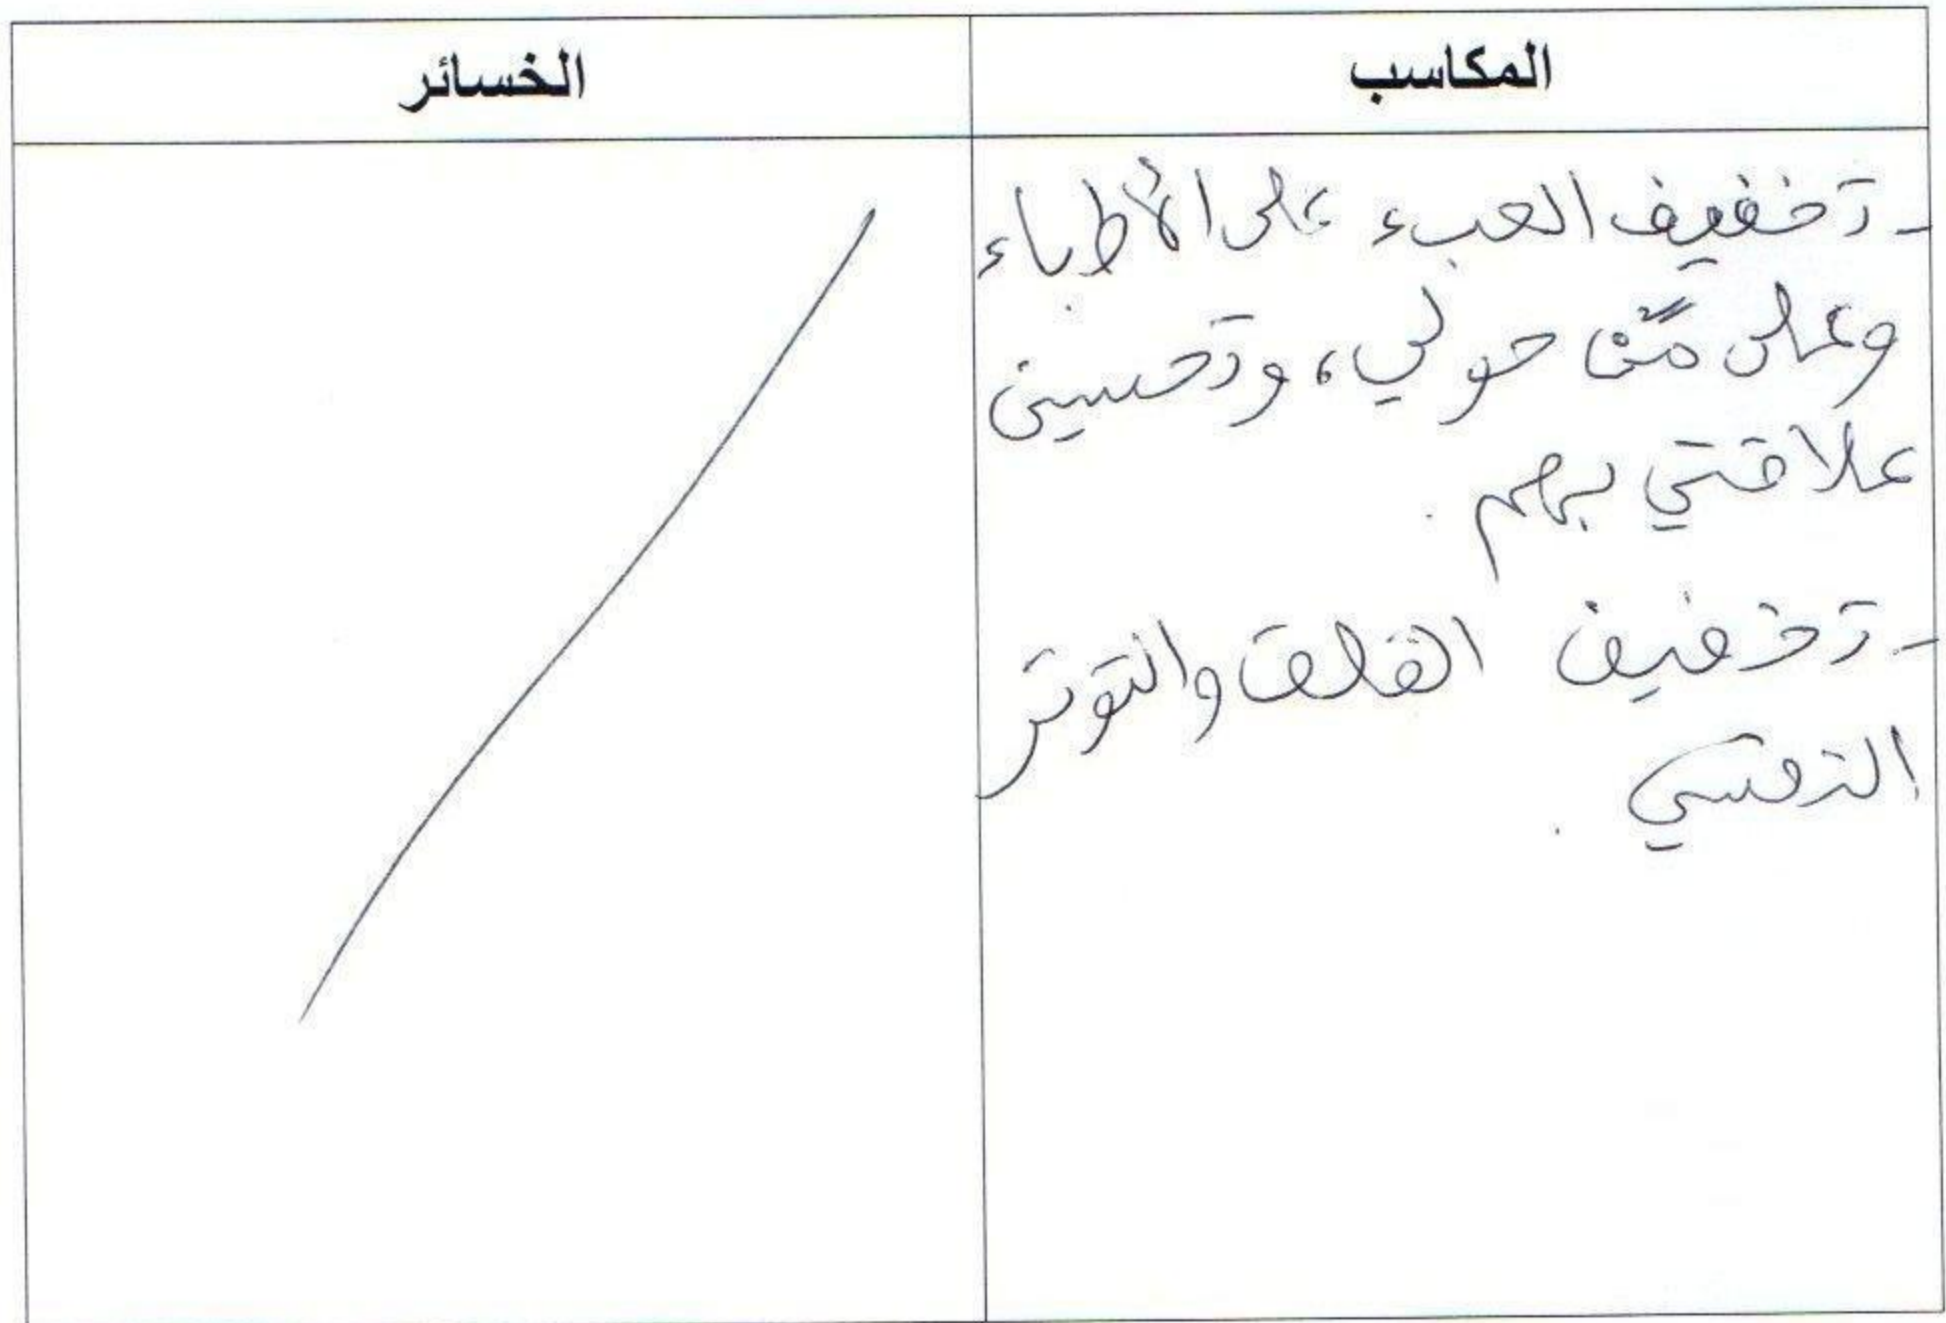 المكاسب
الخسائر
- تخفيف العبء على الأطباء
وعلى من حولي، وتحسين
علاقتي بهم.
- تخفيف القلق والتوتر
النفسي.